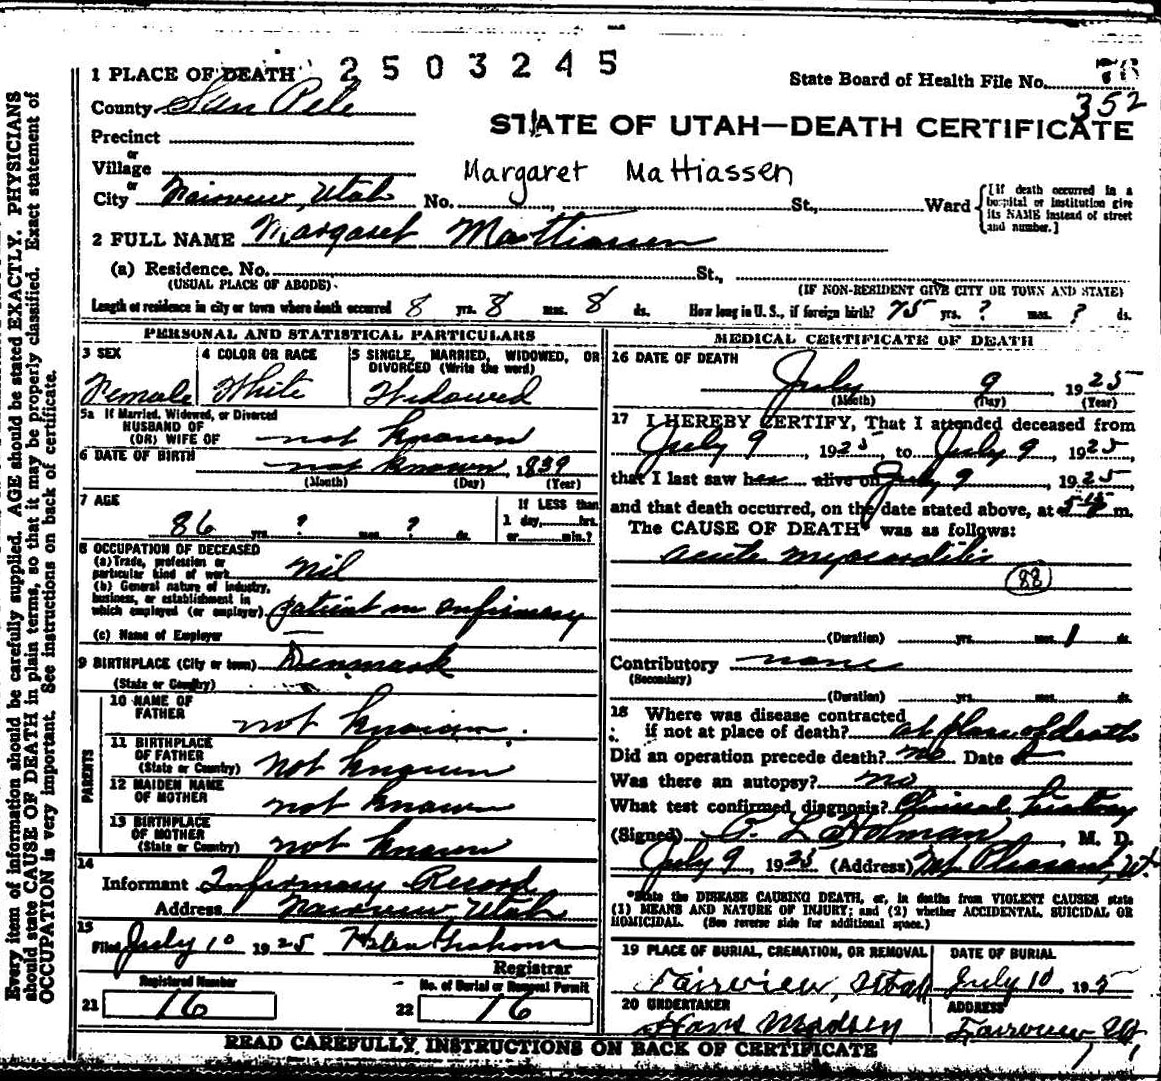 2503245
1 PLACE OF DEATH
State Board of Health File No. 78
352
County San Pete
STATE OF UTAH—DEATH CERTIFICATE
Precinct
or
Village
Margaret Mattiassen
or
City Fairview, Utah No. St., Ward
[If death occurred in a hospital or institution give its NAME instead of street and number.]
2 FULL NAME Margaret Mattiassen
(a) Residence. No. St.,
(USUAL PLACE OF ABODE)
(IF NON-RESIDENT GIVE CITY OR TOWN AND STATE)
Length of residence in city or town where death occurred 8 yrs. 8 mos. 8 ds. How long in U. S., if foreign birth? 75 yrs. ? mos. ? ds.
PERSONAL AND STATISTICAL PARTICULARS
3 SEX Female
4 COLOR OR RACE White
5 SINGLE, MARRIED, WIDOWED, OR DIVORCED (Write the word) Widowed
5a If Married, Widowed, or Divorced
HUSBAND OF
(OR) WIFE OF not known
6 DATE OF BIRTH not known, 1839
(Month) (Day) (Year)
7 AGE
86 yrs. ? mos. ? ds.
If LESS than
1 day, hrs.
or min.?
8 OCCUPATION OF DECEASED
(a) Trade, profession or
particular kind of work nil
(b) General nature of industry,
business, or establishment in
which employed (or employer) patient in infirmary
(c) Name of Employer —
9 BIRTHPLACE (City or town) Denmark
(State or Country)
PARENTS
10 NAME OF
FATHER not known
11 BIRTHPLACE
OF FATHER
(State or Country) not known
12 MAIDEN NAME
OF MOTHER not known
13 BIRTHPLACE
OF MOTHER
(State or Country) not known
14
Informant Infirmary Record
Address Fairview, Utah
15
Filed July 10 1925 Helen Graham
Registrar
Registered Number
21 16
No. of Burial or Removal Permit
22 16
MEDICAL CERTIFICATE OF DEATH
16 DATE OF DEATH
July 9 1925
(Month) (Day) (Year)
17 I HEREBY CERTIFY, That I attended deceased from
July 9, 1925, to July 9, 1925,
that I last saw her alive on July 9, 1925
and that death occurred, on the date stated above, at m.
The CAUSE OF DEATH was as follows:
acute myocarditis
(88)
(Duration) yrs. mos. 1 ds.
Contributory none
(Secondary)
(Duration) yrs. mos. ds.
18 Where was disease contracted
if not at place of death? at place of death
Did an operation precede death? no Date of
Was there an autopsy? no
What test confirmed diagnosis? Clinical history
(Signed) Holman, M. D.
July 9, 1925 (Address) Mt Pleasant, Ut.
*State the DISEASE CAUSING DEATH, or, in deaths from VIOLENT CAUSES state
(1) MEANS AND NATURE OF INJURY; and (2) whether ACCIDENTAL, SUICIDAL OR
HOMICIDAL. (See reverse side for additional space.)
19 PLACE OF BURIAL, CREMATION, OR REMOVAL
Fairview, Utah
DATE OF BURIAL
July 10 1925
20 UNDERTAKER
Hans Madsen
ADDRESS
Fairview, Ut,
READ CAREFULLY INSTRUCTIONS ON BACK OF CERTIFICATE
Every item of information should be carefully supplied. AGE should be stated EXACTLY. PHYSICIANS
should state CAUSE OF DEATH in plain terms, so that it may be properly classified. Exact statement of
OCCUPATION is very important. See instructions on back of certificate.